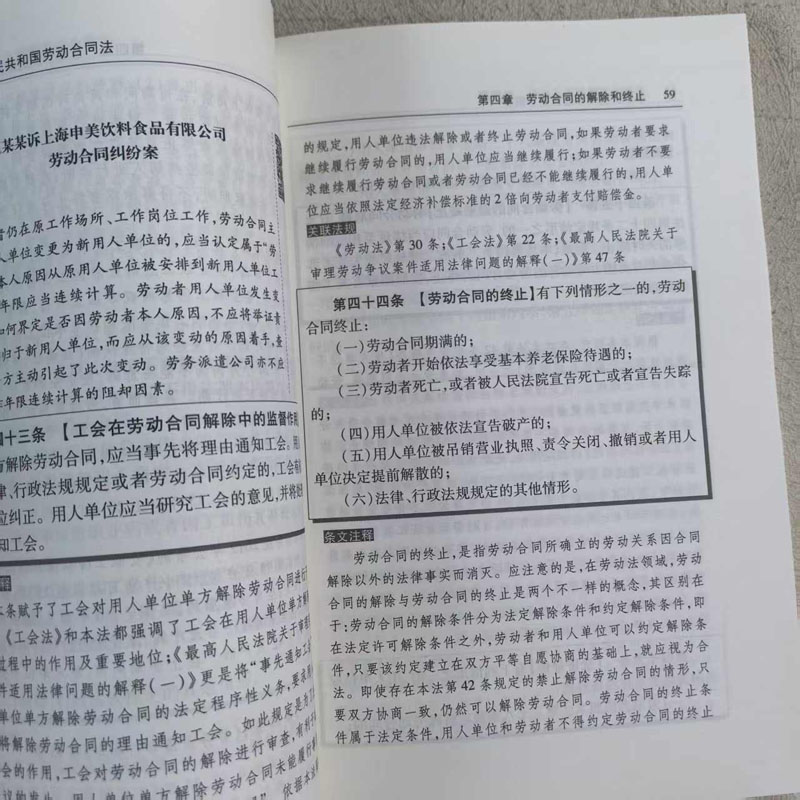 民共和国劳动合同法
某某诉上海申美饮料食品有限公司
劳动合同纠纷案
者仍在原工作场所、工作岗位工作,劳动合同主
人单位变更为新用人单位的,应当认定属于“劳
本人原因从原用人单位被安排到新用人单位工
年限应当连续计算。劳动者用人单位发生变
如何界定是否因劳动者本人原因,不应将举证责
归于新用人单位,而应从该变动的原因着手,查
方主动引起了此次变动。劳务派遣公司亦不应
年限连续计算的阻却因素。
十三条 【工会在劳动合同解除中的监督作用
方解除劳动合同,应当事先将理由通知工会。用
律、行政法规规定或者劳动合同约定的,工会有
位纠正。用人单位应当研究工会的意见,并将处
知工会。
释
本条赋予了工会对用人单位单方解除劳动合同进行
《工会法》和本法都强调了工会在用人单位单方解
过程中的作用及重要地位;《最高人民法院关于审理
件适用法律问题的解释(一)》更是将“事先通知工会
单位单方解除劳动合同的法定程序性义务,要求用
将解除劳动合同的理由通知工会。如此规定是为了
会的作用,工会对劳动合同的解除进行审查,有利于
议的发生。用人单位单方解除劳动合同未能履行事
依据本法
第四章 劳动合同的解除和终止 59
的规定,用人单位违法解除或者终止劳动合同,如果劳动者要求
继续履行劳动合同的,用人单位应当继续履行;如果劳动者不要
求继续履行劳动合同或者劳动合同已经不能继续履行的,用人单
位应当依照法定经济补偿标准的2倍向劳动者支付赔偿金。
关联法规
《劳动法》第30条;《工会法》第22条;《最高人民法院关于
审理劳动争议案件适用法律问题的解释(一)》第47条
第四十四条 【劳动合同的终止】有下列情形之一的,劳动
合同终止:
(一)劳动合同期满的;
(二)劳动者开始依法享受基本养老保险待遇的;
(三)劳动者死亡,或者被人民法院宣告死亡或者宣告失踪
的;
(四)用人单位被依法宣告破产的;
(五)用人单位被吊销营业执照、责令关闭、撤销或者用人
单位决定提前解散的;
(六)法律、行政法规规定的其他情形。
条文注释
劳动合同的终止,是指劳动合同所确立的劳动关系因合同
解除以外的法律事实而消灭。应注意的是,在劳动法领域,劳动
合同的解除与劳动合同的终止是两个不一样的概念,其区别在
于:劳动合同的解除条件分为法定解除条件和约定解除条件,即
在法定许可解除条件之外,劳动者和用人单位可以约定解除条
件,只要该约定建立在双方平等自愿协商的基础上,就应视为合
法。即使存在本法第42条规定的禁止解除劳动合同的情形,只
要双方协商一致,仍然可以解除劳动合同。劳动合同的终止条
件属于法定条件,用人单位和劳动者不得约定劳动合同的终止